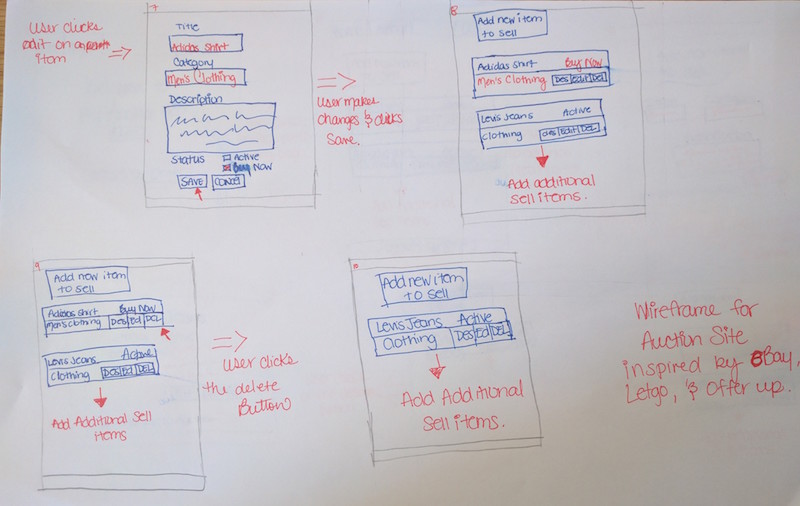 User clicks
edit on a
item
7
Title
Adidas Shirt
Category
Men's Clothing
Description
Status
Active
Buy Now
SAVE
CANCEL
User makes
changes & clicks
Save.
8
Add new item
to sell
Adidas Shirt Buy Now
Men's Clothing Des Edit Del
Levis Jeans Active
Clothing des Edit DEL
Add additional
sell items.
9
Add new item
to sell
Adidas Shirt Buy Now
Men's clothing Des Ed DEL
Levis Jeans Active
Clothing Des Ed DEL
Add Additional Sell
Items
User clicks
the delete
Button
Add new item
to sell
Levis Jeans Active
Clothing Des Ed DEL
Add Additional
Sell items.
Wireframe for
Auction Site
inspired by EBay,
Letgo, & Offer up.